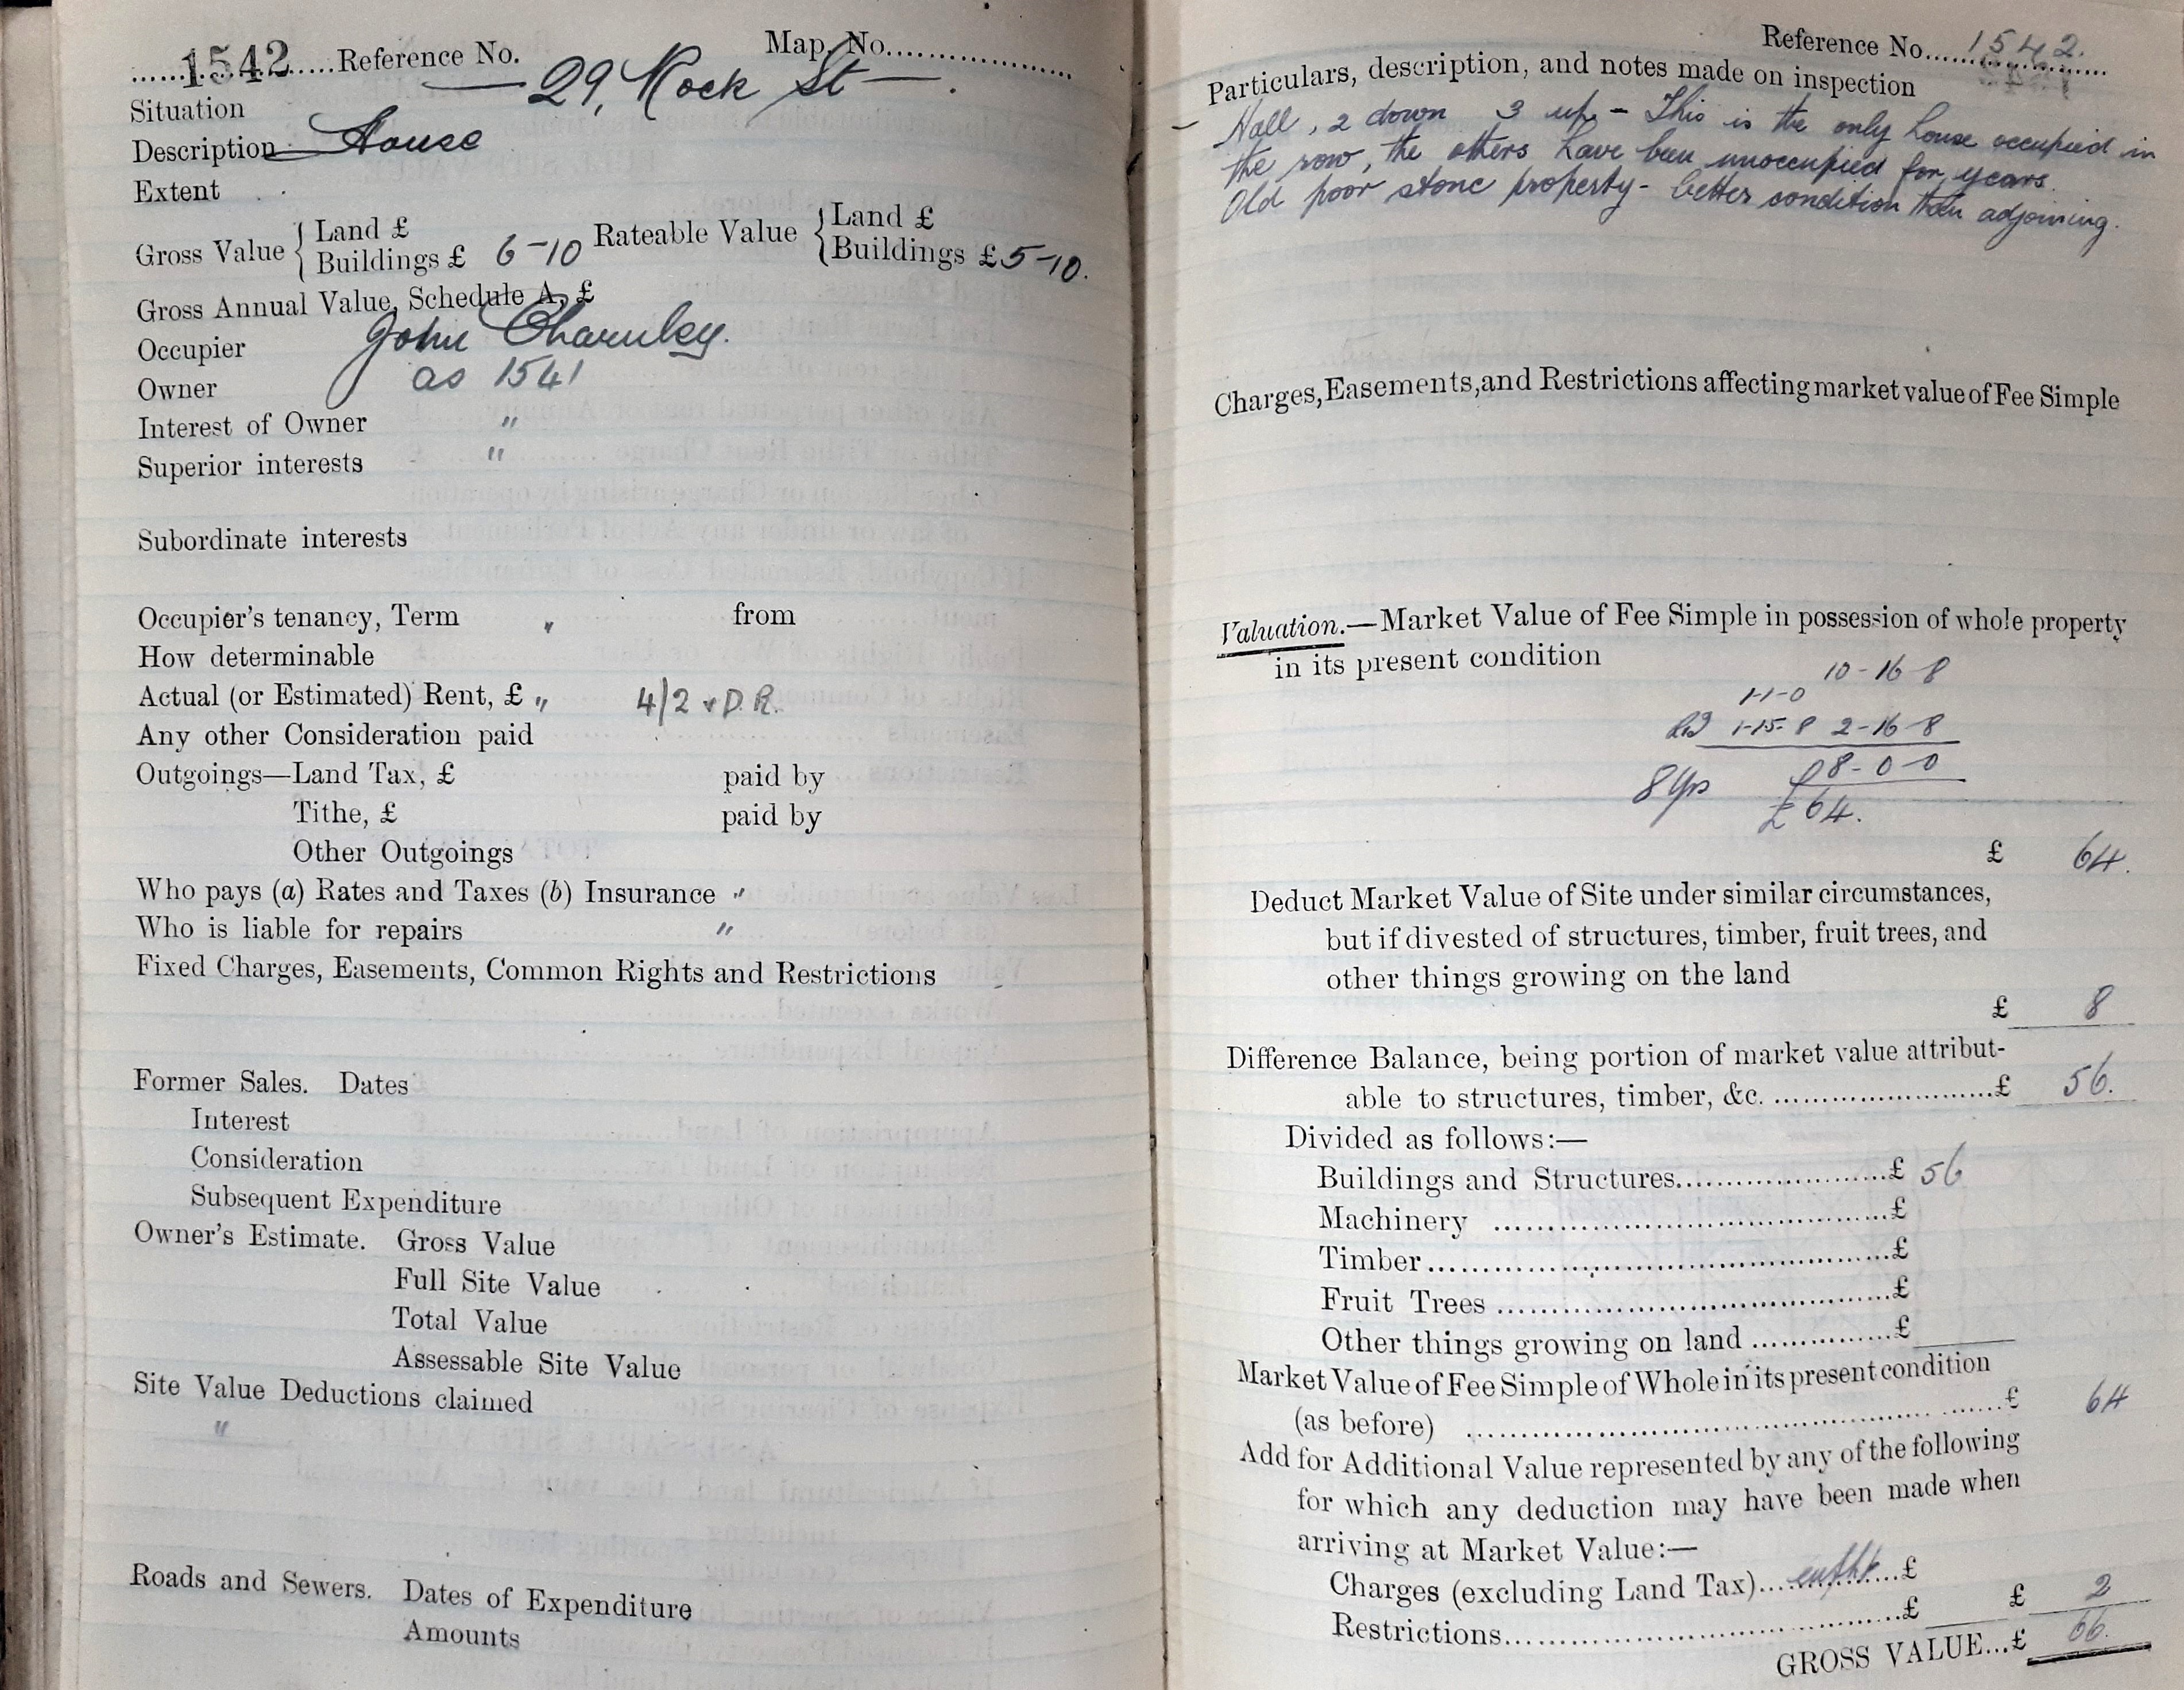 1542 Reference No. Map. No.
Situation — 29, Rock St —.
Description House
Extent
Gross Value { Land £ Rateable Value { Land £
Buildings £ 6-10 Buildings £ 5-10.
Gross Annual Value, Schedule A, £
Occupier John Charnley.
Owner as 1541
Interest of Owner "
Superior interests "
Subordinate interests
Occupier's tenancy, Term " from
How determinable
Actual (or Estimated) Rent, £ " 4/2 + D.R.
Any other Consideration paid
Outgoings—Land Tax, £ paid by
Tithe, £ paid by
Other Outgoings
Who pays (a) Rates and Taxes (b) Insurance "
Who is liable for repairs "
Fixed Charges, Easements, Common Rights and Restrictions
Former Sales. Dates
Interest
Consideration
Subsequent Expenditure
Owner's Estimate. Gross Value
Full Site Value
Total Value
Assessable Site Value
Site Value Deductions claimed
"
Roads and Sewers. Dates of Expenditure
Amounts
Reference No. 1542.
Particulars, description, and notes made on inspection
Hall, 2 down 3 up - This is the only house occupied in
the row, the others have been unoccupied for years.
Old poor stone property - better condition than adjoining.
Charges, Easements, and Restrictions affecting market value of Fee Simple
Valuation.—Market Value of Fee Simple in possession of whole property
in its present condition
10-16-8
1-1-0
1-15-8 2-16-8
£8-0-0
8 Yrs £64.
£ 64.
Deduct Market Value of Site under similar circumstances,
but if divested of structures, timber, fruit trees, and
other things growing on the land
£ 8
Difference Balance, being portion of market value attribut-
able to structures, timber, &c. £ 56.
Divided as follows:—
Buildings and Structures £ 56
Machinery £
Timber £
Fruit Trees £
Other things growing on land £
Market Value of Fee Simple of Whole in its present condition
(as before) £ 64
Add for Additional Value represented by any of the following
for which any deduction may have been made when
arriving at Market Value:—
Charges (excluding Land Tax) £
Restrictions £ £ 2
GROSS VALUE...£ 66.